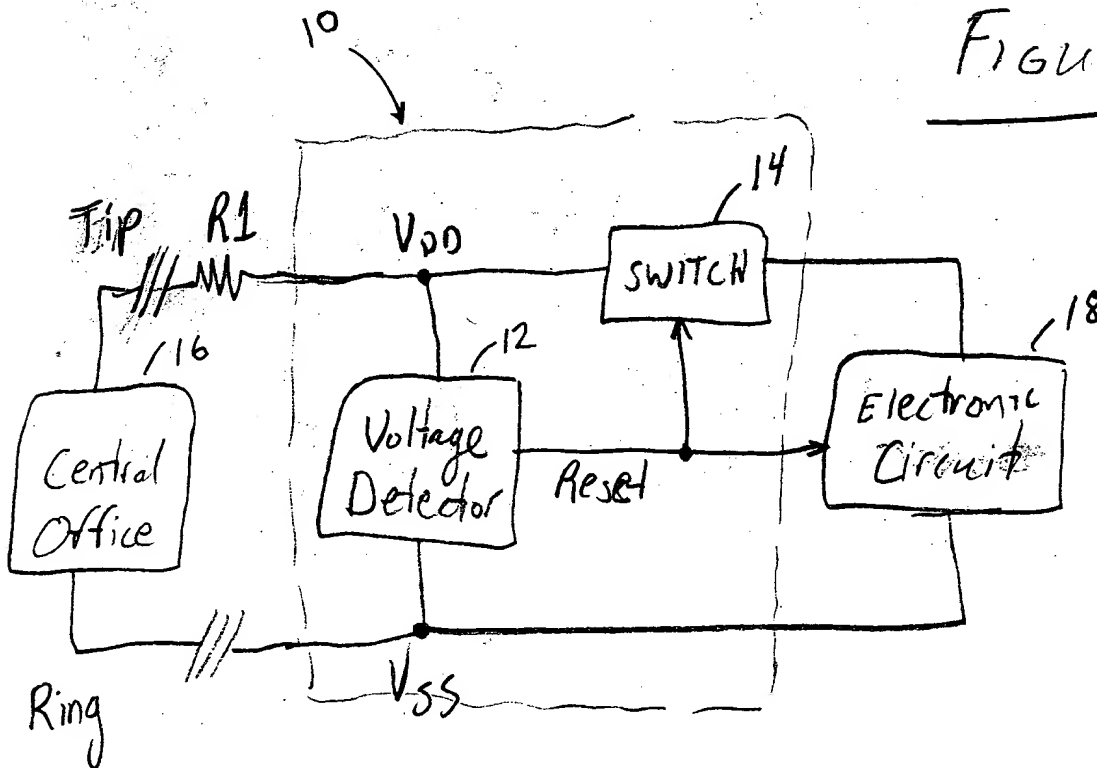 10
FIGU
14
Tip R1 VDD
SWITCH
18
16
12
Central
Office
Voltage
Detector
Reset
Electronic
Circuit
VSS
Ring